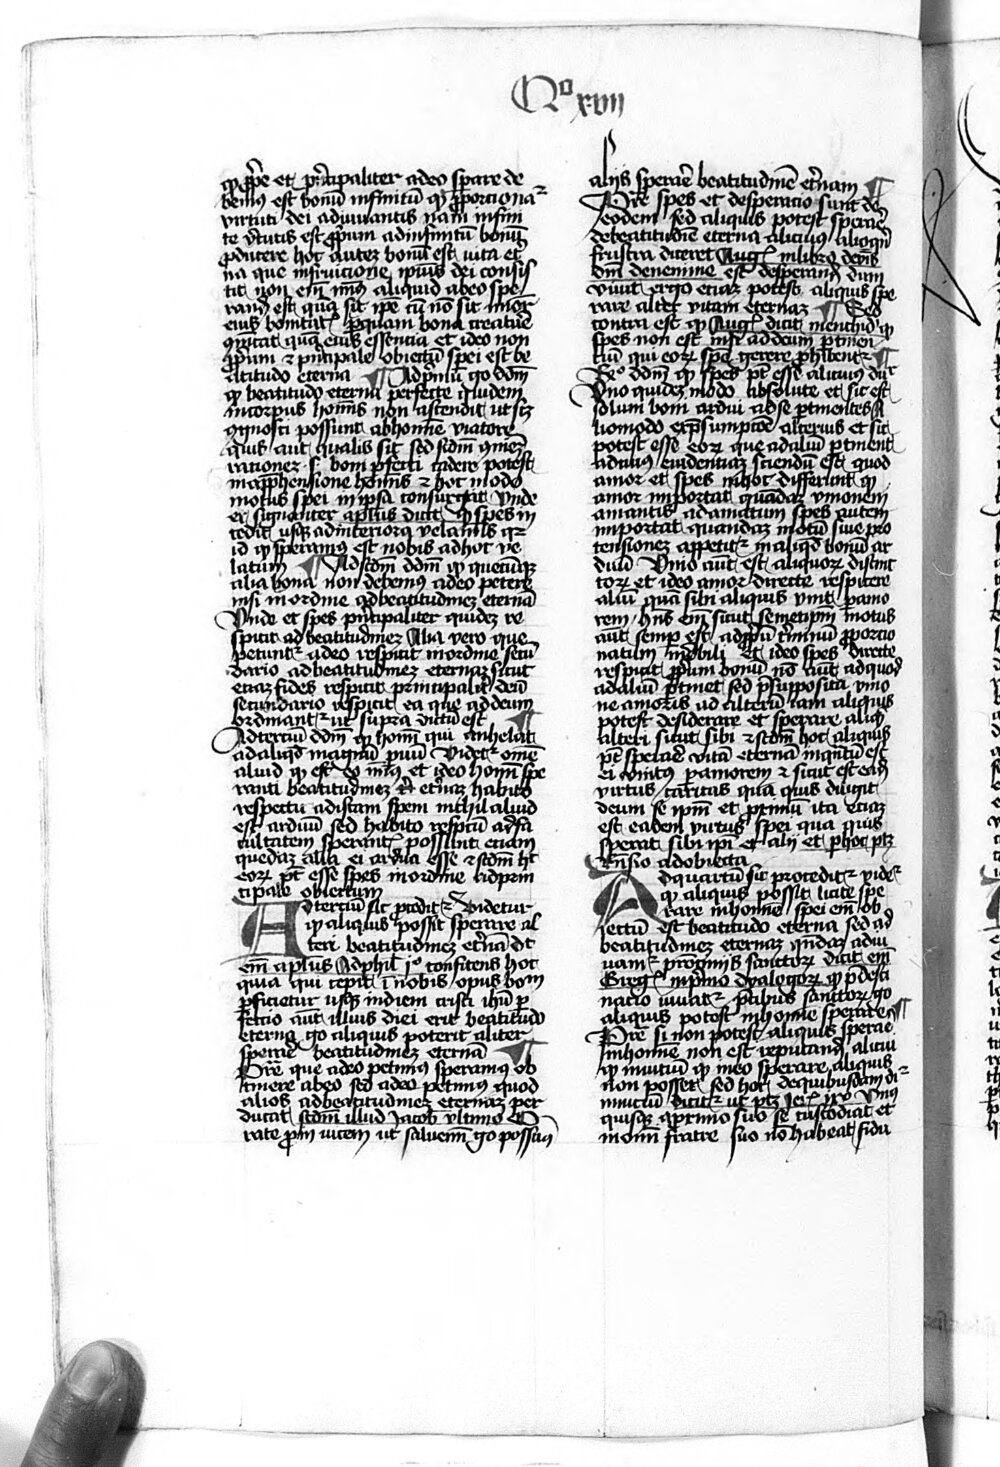 Qo xvii
ꝓpͥe et pͥncipaliter adeo sperare de
bemꝰ est bonū infinitū qꝫ ꝓporciona
virtuti dei adiuuantis nam infini
te v̓tutis est ꝓpͥum ad infinitū bonū
ꝓducere hoc autez bonū est vita et̓
na que in fruicione ipiꝰ dei consis
tit non em̄ minꝰ aliquid ab eo spe
rand̄ est quā sit ipe cū nō sit minor
eius bonitas ꝑ quam bona creature
cōicat quā eius essencia et ideo non
ꝓpͥum ⁊ pͥncipale obiectū spei est be
atitudo eterna ¶ Ad pͥmū go dd̄m
qꝫ beatitudo eterna perfecte quidem
in cor hois non ascendit ut scꝫ
cognosci possunt ab homine viatore
quis aut qualis sit sed scdm cōmēz
rationez s. boni ꝑfecti cadere potest
in apphensione hominis ⁊ hoc modo
motus spei in ipsa consurgit Vnde
et signanter aplus dicit qꝫ spes in
cedit usqꝫ ad interiora velamis qꝛ
id qꝫ speramꝰ est nobis adhoc ve
latum ¶ Ad scdm dd̄m qꝫ quecūqꝫ
alia bona non debemꝰ adeo petere
nisi in ordine ad beatitudinez eternā
Vnde et spes pͥncipaliter quidez re
spicit ad beatitudinez Alia vero que
petunt̓ adeo respicit in ordine secū
dario ad beatitudinez eternaz sicut
etiaz fides respicit principalit̓ deū
secundario respicit ea que ad deum
ordinant̓ ut supra dictū est ¶
Ad terciū dd̄m qꝫ homī qui anhelat
ad aliqd magnū puū videt̓ omē
aliud qꝫ est eo minꝰ et ideo homī spe
ranti beatitudinez et̓naz habito
respectu ad istam spem nichil aliud
est arduū sed habito respcū ad fa
cultatem sperantis possunt etiam
quedaz alia ei ardua esse ⁊ scdm hͦ
eorꝫ pͭ esse spes in ordine ad prin
cipale obiectum
Ad tercium sic ꝓcedit̓ Videtur
qꝫ aliquis possit sperare al
teri beatitudinez et̓nā dͭ
em̄ aplus Ad phil jͦ confitens hoc
quia qui cepit ī nobis opus bonū
ꝑficietur usqꝫ in diem cristi ihū ꝑ
fectio aut illius diei erit beatitudo
eterna go aliquis poterit aliter
sperare beatitudinez eternā ¶
Pͥre que adeo petimꝰ speramꝰ ob
tinere ab eo sed adeo petimꝰ quod
alios ad beatitudinez eternaz per
ducat scdm illud Jacob vltimo O
rate pro inuicem ut saluemī go possuꝫ
aliis sperare beatitudinē et̓nam ¶
Pͥre spes et desperacio sunt de
eodem sed aliquis potest sperare
de beatitudine eterna alicuiꝰ alioqn̄
frustra diceret Augꝰ in libro de v̓bis
dn̄i de nemine est desperand̄ dum
viuit ergo etiaz potest aliquis spe
rare alter vitam eternaz ¶ Sed
contra est qꝫ Augꝰ dicit in enchid̓ qꝫ
spes non est nisi ad deum ꝑtinen
ciū qui eorꝫ spē gerere ꝑhibent̓ ¶
Reͦ dd̄m qꝫ spes pͭ esse alicuiꝰ dupͭ
Vno quidez modo absolute et sic est
solum boni ardui ad se ꝑtinentes A
lio modo ex psumpcōe alterius et sic
potest esse eorꝫ que ad aliū ꝑtinent
ad cuiꝰ euidentiaz sciendū est quod
amor et spes in hoc differunt qꝫ
amor importat quādaz vnionem
amantis ad amatum spes autem
importat quandaz motū siue pro
tensionez appetitꝰ in aliqd bonū ar
duū Vnio aut est aliquorꝫ distinc
torꝫ et ideo amor directe respicere
aliū quā sibi aliquis vnit ꝑ amo
rem hn̄s em̄ sicut semetipm motus
aut semꝑ est ad ꝓpͥū terminū ꝓporcio
natum mobili et ideo spes directe
respicit ꝓpͥum bonū nō aut ad quod
ad aliū ꝑtinet sed psupposita vnio
ne amoris ad alterū iam aliquis
potest desiderare et sperare aliqd
alteri sicut sibi ⁊ scdm hoc aliquis
pͭ sperare vitā eternā inqntū est
ei vnitus ꝑ amorem ⁊ sicut est eadē
virtus caritas qua quis diligit
deum se ipm et proximū ita etiaz
est eadem virtus spei qua quis
sperat sibi ipi et alii et ꝑ hoc ptꝫ
rn̄sio ad obiecta
Ad quartū sic procedit̓ vide
qꝫ aliquis possit licite spe
rare in homine spei em̄ ob
iectū est beatitudo eterna sed ad
beatitudinez eternaz quēdaꝫ adiu
uam̄ progeniis sanctorꝫ dicit em̄
Gregꝰ in pͥmo dyalogorꝫ qꝫ pdesti
nacio iuuat̓ p̄cibus sanctorꝫ go
aliquis potest in homine sperare ¶
Pͥre si non potest aliquis sperare
in homine non est reputand̄ alicui
qꝫ in vitiū qꝫ in eo sperare aliquis
non posset sed hoc de quibusdam di
iniuriū dicit̓ ut ptꝫ Jerꝰ ixͦ Vnus
quisqꝫ a proximo suo se custodiat et
in omī fratre suo nō habeat fidu